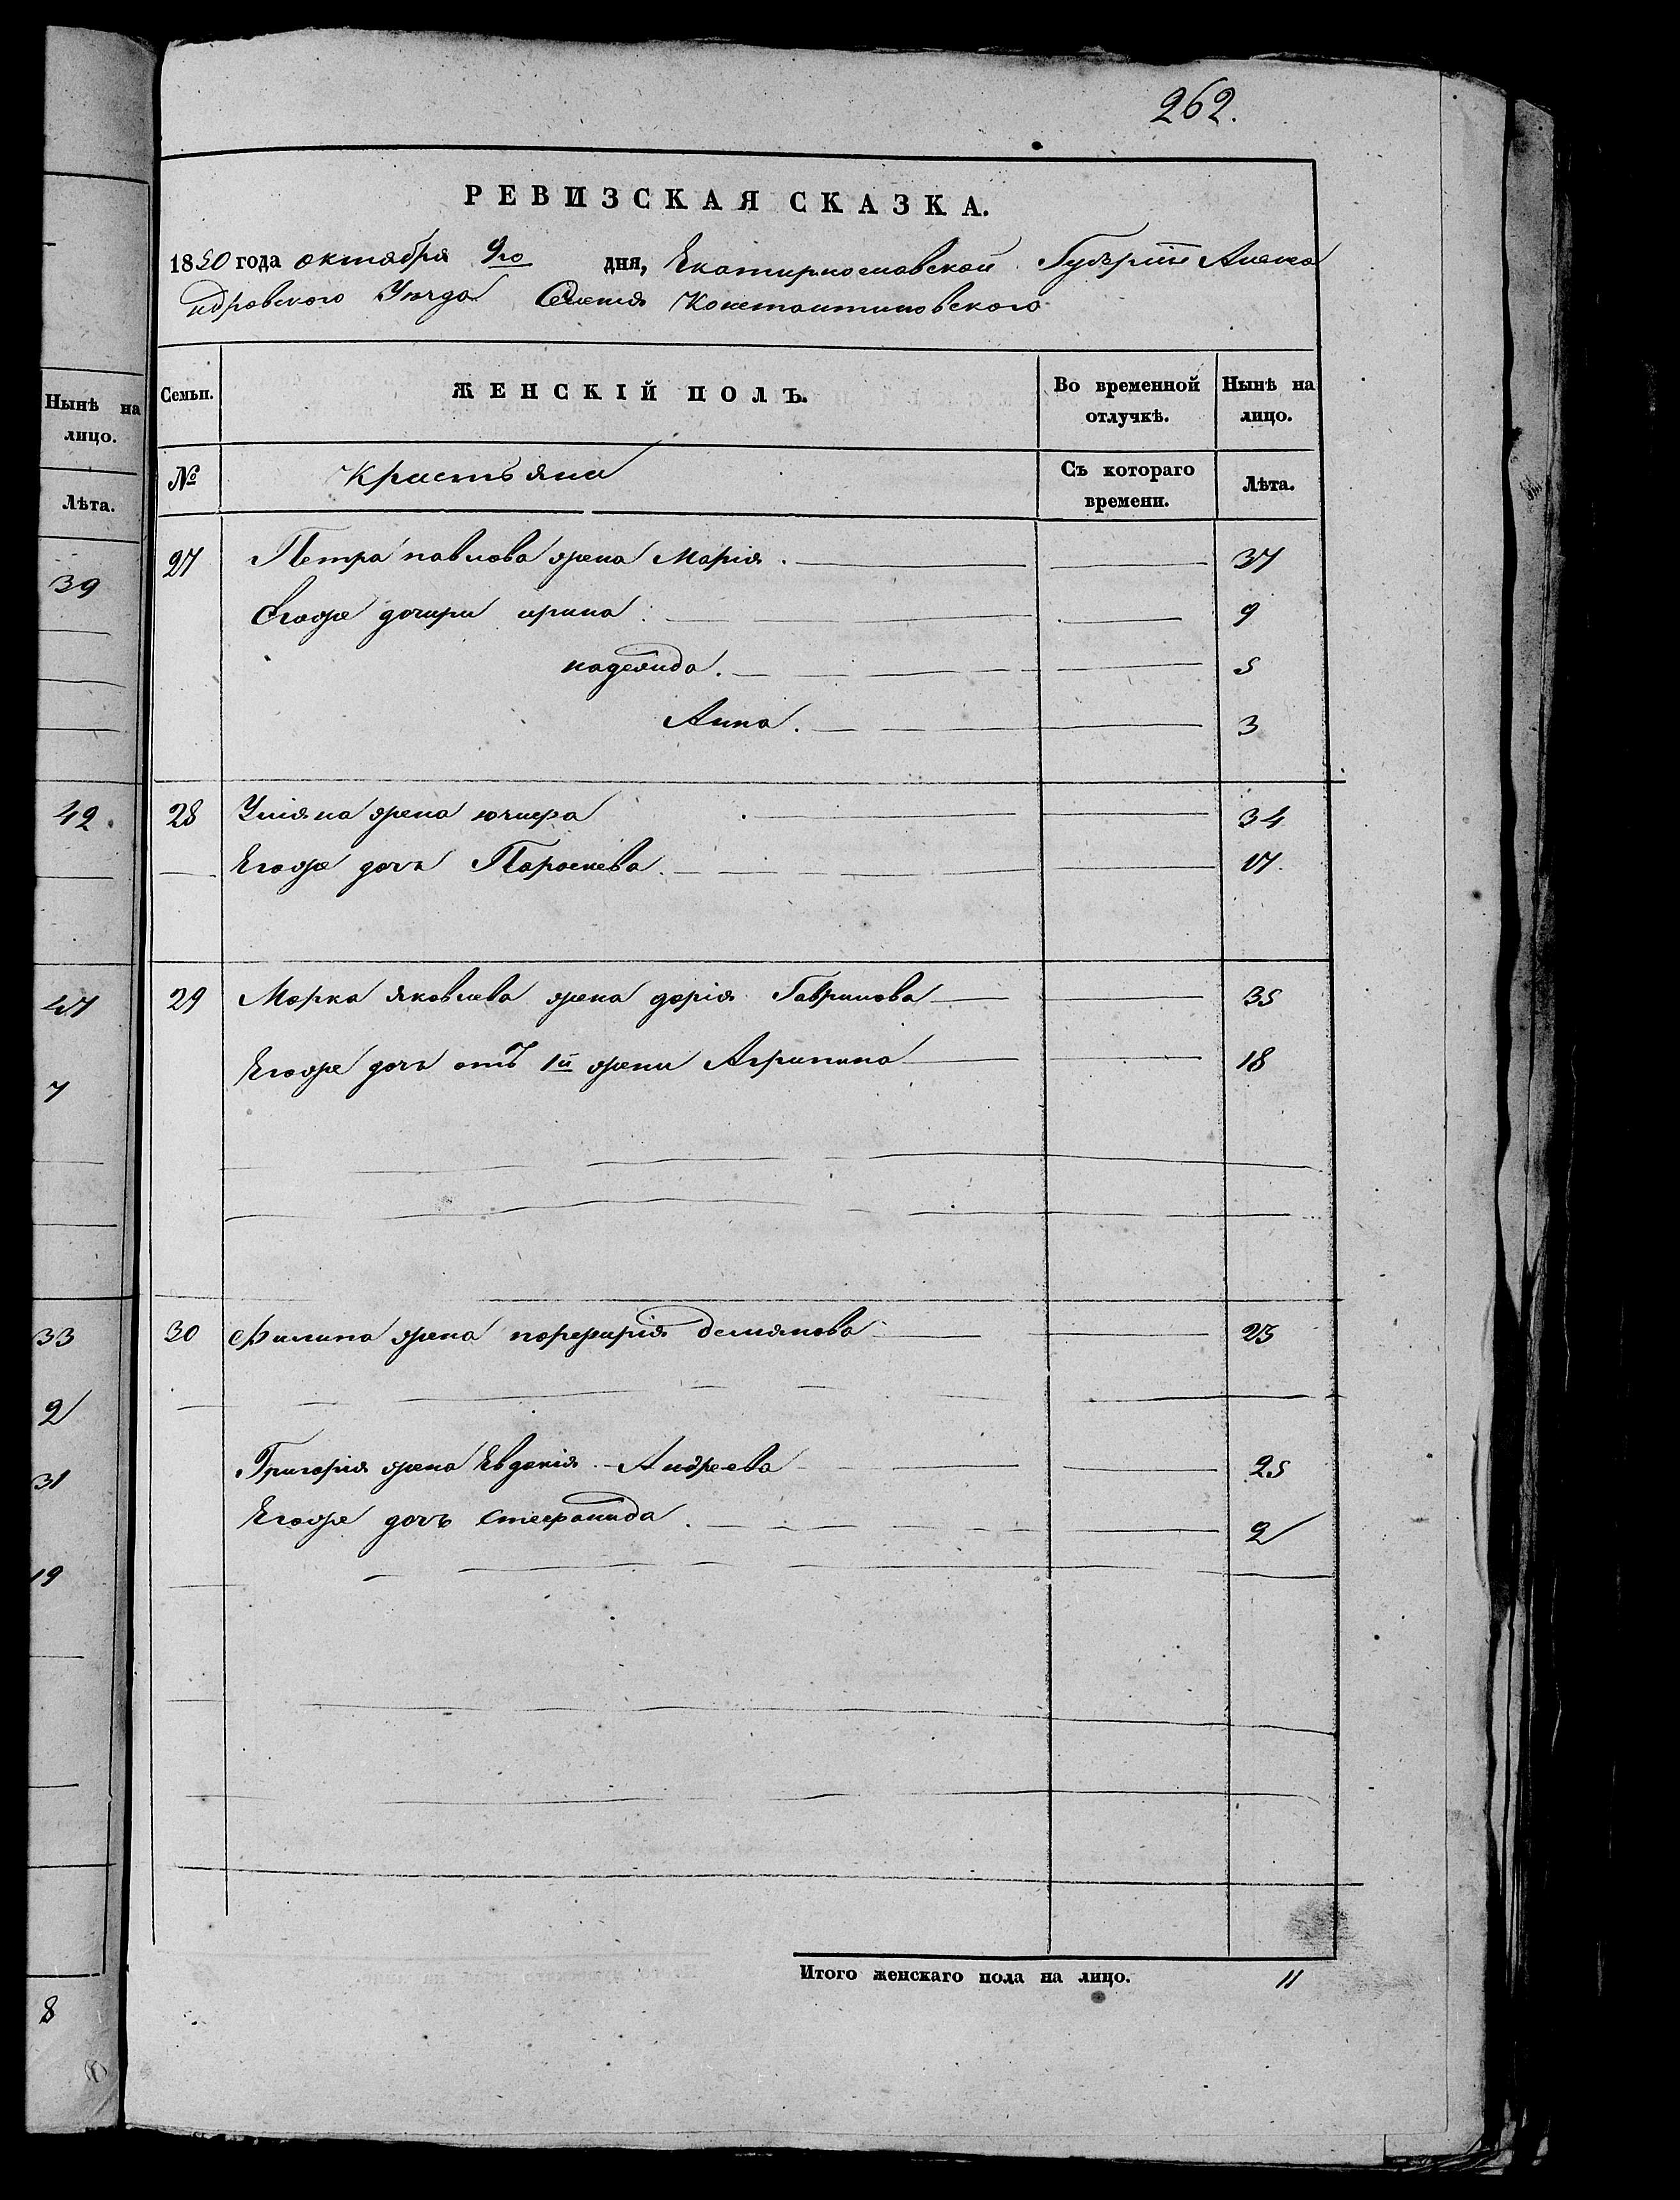 262.
РЕВИЗСКАЯ СКАЗКА.
1850 года октября 9го дня, Екатиринославской Губерніи Алекса
ндровского Уезда Селенія Константиновского
Нынѣ на лицо.
Семьи.
ЖЕНСКІЙ ПОЛЪ.
Во временной отлучкѣ.
Нынѣ на лицо.
Лѣта.
№
Крестьяни
Съ котораго времени.
Лѣта.
39
27 Петра павлова жена Марія. 37
Егоже дочири ирина 9
надежида. 5
Анна. 3
42.
28 Уліяна жена 34
Егоже дочь Пароскева. 17.
47
29 Марка яковлева жена дарія Гаврилова 35
7
Егоже дочь отъ 1й жени Агрипина 18
33
30 Филипа жена порфирія демянова 23
2
31
Григорія жена Евдокія Андреева 25
Егоже дочь Стефанида. 2
19
Итого женскаго пола на лицо. 11
8